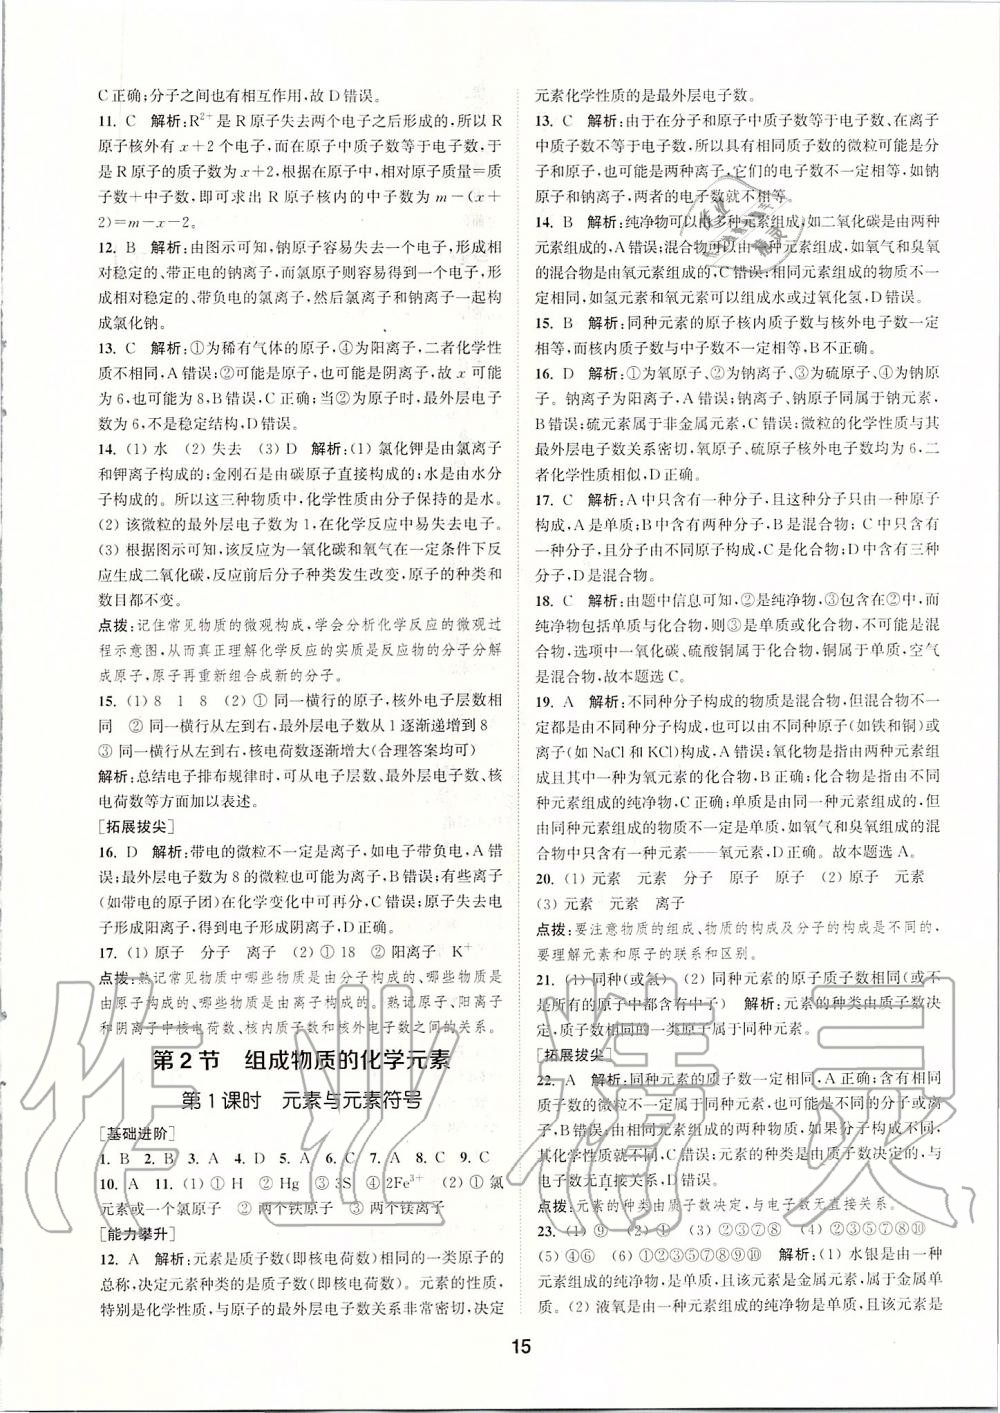 C正确;分子之间也有相互作用,故D错误。
11. C 解析:R²⁺是R原子失去两个电子之后形成的,所以R
原子核外有x+2个电子,而在原子中质子数等于电子数,于
是R原子的质子数为x+2,根据在原子中,相对原子质量=质
子数+中子数,即可求出R原子核内的中子数为m-(x+
2)=m-x-2。
12. B 解析:由图示可知,钠原子容易失去一个电子,形成相
对稳定的、带正电的钠离子,而氯原子容易得到一个电子,形
成相对稳定的、带负电的氯离子,然后氯离子和钠离子一起构
成氯化钠。
13. C 解析:①为稀有气体的原子,④为阳离子,二者化学性
质不相同,A错误;②可能是原子,也可能是阴离子,故x可能
为6,也可能为8,B错误,C正确;当②为原子时,最外层电子
数为6,不是稳定结构,D错误。
14. (1) 水 (2) 失去 (3) D 解析:(1) 氯化钾是由氯离子
和钾离子构成的;金刚石是由碳原子直接构成的;水是由水分
子构成的。所以这三种物质中,化学性质由分子保持的是水。
(2) 该微粒的最外层电子数为1,在化学反应中易失去电子。
(3) 根据图示可知,该反应为一氧化碳和氧气在一定条件下反
应生成二氧化碳,反应前后分子种类发生改变,原子的种类和
数目都不变。
点拨:记住常见物质的微观构成,学会分析化学反应的微观过
程示意图,从而真正理解化学反应的实质是反应物的分子分解
成原子,原子再重新组合成新的分子。
15. (1) 8 1 8 (2) ① 同一横行的原子,核外电子层数相
同 ② 同一横行从左到右,最外层电子数从1逐渐递增到8
③ 同一横行从左到右,核电荷数逐渐增大(合理答案均可)
解析:总结电子排布规律时,可从电子层数、最外层电子数、核
电荷数等方面加以表述。
[拓展拔尖]
16. D 解析:带电的微粒不一定是离子,如电子带负电,A错
误;最外层电子数为8的微粒也可能为离子,B错误;有些离子
(如带电的原子团)在化学变化中可再分,C错误;原子失去电
子形成阳离子,得到电子形成阴离子,D正确。
17. (1) 原子 分子 离子 (2) ① 18 ② 阳离子 K⁺
点拨:熟记常见物质中哪些物质是由分子构成的、哪些物质是
由原子构成的、哪些物质是由离子构成的。熟记原子、阳离子
和阴离子中核电荷数、核内质子数和核外电子数之间的关系。
第2节 组成物质的化学元素
第1课时 元素与元素符号
[基础进阶]
1. B 2. B 3. A 4. D 5. A 6. C 7. A 8. C 9. C
10. A 11. (1) ① H ② Hg ③ 3S ④ 2Fe³⁺ (2) ① 氯
元素或一个氯原子 ② 两个铁原子 ③ 两个镁离子
[能力攀升]
12. A 解析:元素是质子数(即核电荷数)相同的一类原子的
总称,决定元素种类的是质子数(即核电荷数)。元素的性质,
特别是化学性质,与原子的最外层电子数关系非常密切,决定
元素化学性质的是最外层电子数。
13. C 解析:由于在分子和原子中质子数等于电子数、在离子
中质子数不等于电子数,所以具有相同质子数的微粒可能是分
子和原子,也可能是两种离子,它们的电子数不一定相等,如钠
原子和钠离子,两者的电子数就不相等。
14. B 解析:纯净物可以由多种元素组成,如二氧化碳是由两种
元素组成的,A错误;混合物可以由一种元素组成,如氧气和臭氧
的混合物是由氧元素组成的,C错误;相同元素组成的物质不一
定相同,如氢元素和氧元素可以组成水或过氧化氢,D错误。
15. B 解析:同种元素的原子核内质子数与核外电子数一定
相等,而核内质子数与中子数不一定相等,B不正确。
16. D 解析:①为氧原子、②为钠离子、③为硫原子、④为钠原
子。钠离子为阳离子,A错误;钠离子、钠原子同属于钠元素,
B错误;硫元素属于非金属元素,C错误;微粒的化学性质与其
最外层电子数关系密切,氧原子、硫原子核外电子数均为6,二
者化学性质相似,D正确。
17. C 解析:A中只含有一种分子,且这种分子只由一种原子
构成,A是单质;B中含有两种分子,B是混合物;C中只含有
一种分子,且分子由不同原子构成,C是化合物;D中含有三种
分子,D是混合物。
18. C 解析:由题中信息可知,②是纯净物,③包含在②中,而
纯净物包括单质与化合物,则③是单质或化合物,不可能是混
合物,选项中一氧化碳、硫酸铜属于化合物,氧气属于单质,空
气是混合物,故本题选C。
19. A 解析:不同种分子构成的物质是混合物,但混合物不一
定都是由不同种分子构成,也可以由不同种原子(如铁和铜)或
离子(如NaCl和KCl)构成,A错误;氧化物是指由两种元素组
成且其中一种为氧元素的化合物,B正确;化合物是指由不同
种元素组成的纯净物,C正确;单质是由同种元素组成的,但
由同种元素组成的物质不一定是单质,如氧气和臭氧组成的混
合物中只含一种元素——氧元素,D正确。故本题选A。
20. (1) 元素 元素 分子 原子 原子 (2) 原子 元素
(3) 元素 元素 离子
点拨:要注意物质的组成、物质的构成及分子的构成是不同的,
要理解元素和原子的联系和区别。
21. (1) 同种(或氢) (2) 同种元素的原子质子数相同(或不
是所有的原子中都含有中子) 解析:元素的种类由质子数决
定,质子数相同的一类原子属于同种元素。
[拓展拔尖]
22. A 解析:同种元素的质子数一定相同,A正确;含有相同
质子数的微粒不一定属于同种元素,因为有可能是分子或离
子,B错误;由相同元素组成的两种物质,如果分子构成不同,
其化学性质不一定相同,C错误;元素的种类是由质子数决定的,与
电子数无直接关系,D错误。
点拨:元素的种类由质子数决定,与电子数无直接关系。
23. (1) ⑨ (2) ④ (3) ②③⑦⑧ (4) ①②③⑦⑧⑨⑩
(5) ④⑥ (6) ①②③④⑤⑦⑧⑨⑩ 解析:(1) 水银是由一种
元素组成的纯净物,是单质,且该元素是金属元素,属于金属单
质。(2) 液氧是由一种元素组成的纯净物是单质,且该元素是
15
作业精灵